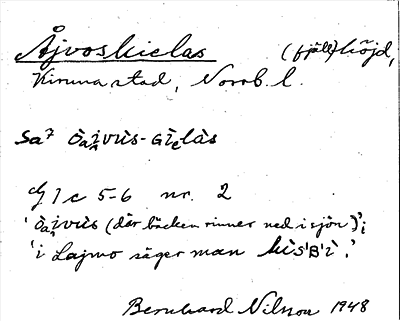 Åjvoskielas (fjäll)höjd,
Kiruna stad, Norrb. l.
Sa7 òai̭vùs-Gi̭elàs
G I c 5-6 nr. 2
'òai̭vùs (där bäcken rinner ned i sjön)';
'i Lajmo säger man
Bernhard Nilsson 1948